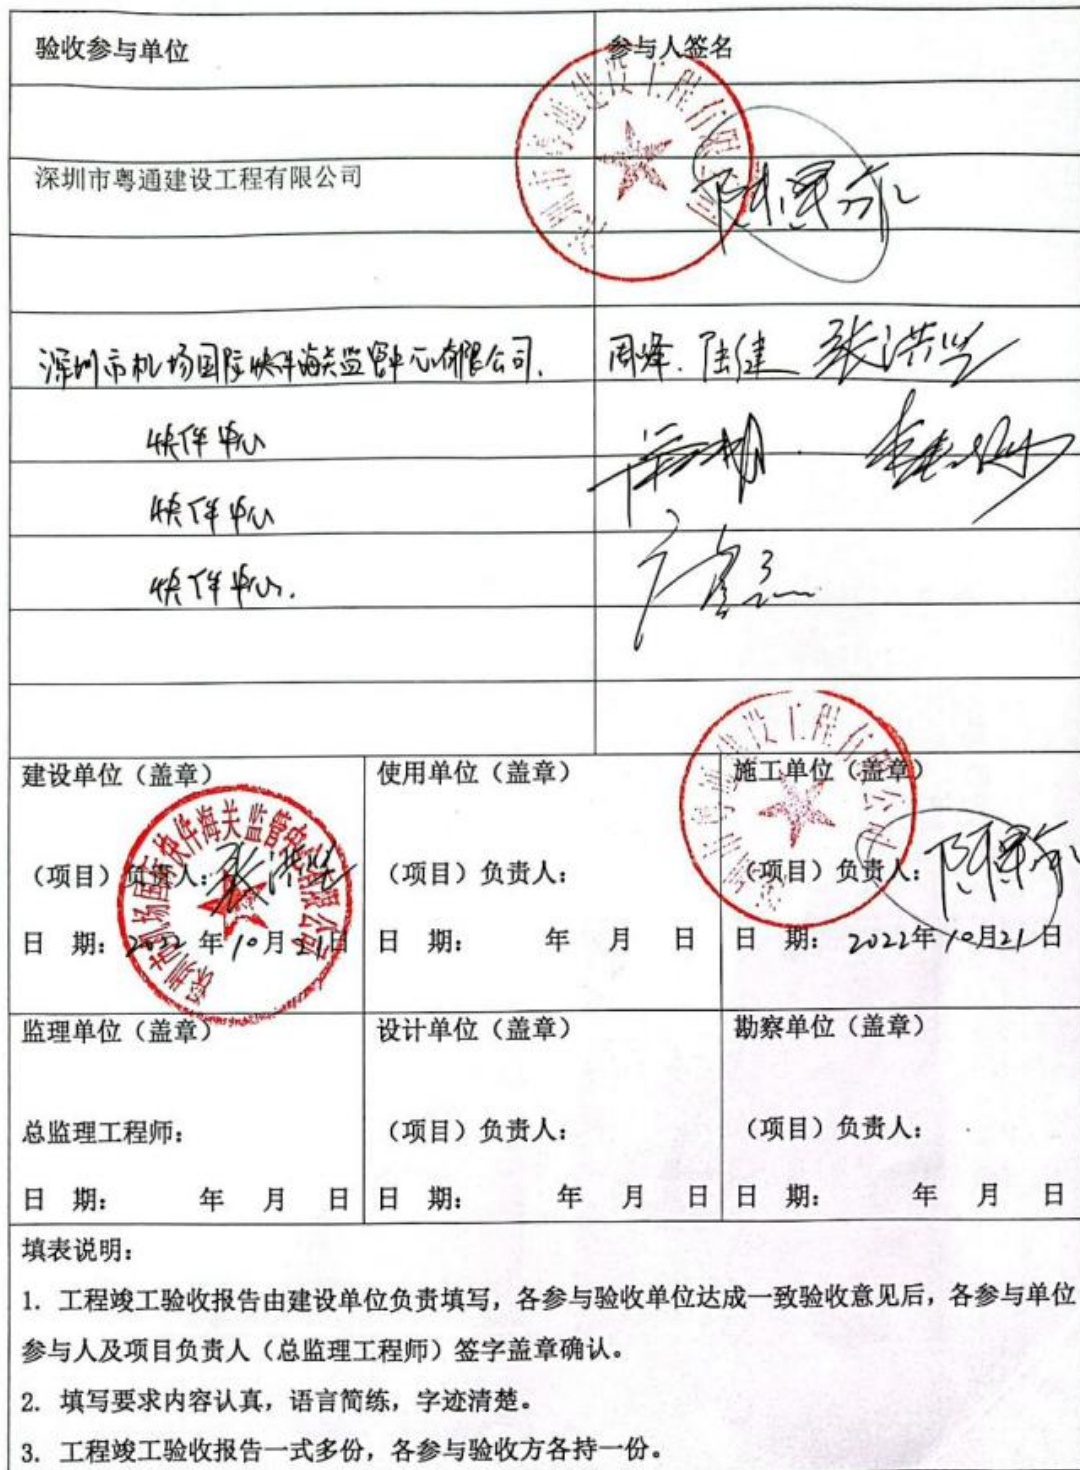 验收参与单位 参与人签名
深圳市粤通建设工程有限公司
深圳市机场国际快件海关监管中心有限公司. 周烽. 陆健 张洪
快件中心
快件中心
快件中心.
建设单位（盖章） 使用单位（盖章） 施工单位（盖章）
（项目）负责人：张洪 （项目）负责人： （项目）负责人：
日 期：2022年10月21日 日 期： 年 月 日 日 期：2022年10月21日
深圳市机场国际快件海关监管中心有限公司
监理单位（盖章） 设计单位（盖章） 勘察单位（盖章）
总监理工程师： （项目）负责人： （项目）负责人：
日 期： 年 月 日 日 期： 年 月 日 日 期： 年 月 日
填表说明：
1. 工程竣工验收报告由建设单位负责填写，各参与验收单位达成一致验收意见后，各参与单位
参与人及项目负责人（总监理工程师）签字盖章确认。
2. 填写要求内容认真，语言简练，字迹清楚。
3. 工程竣工验收报告一式多份，各参与验收方各持一份。